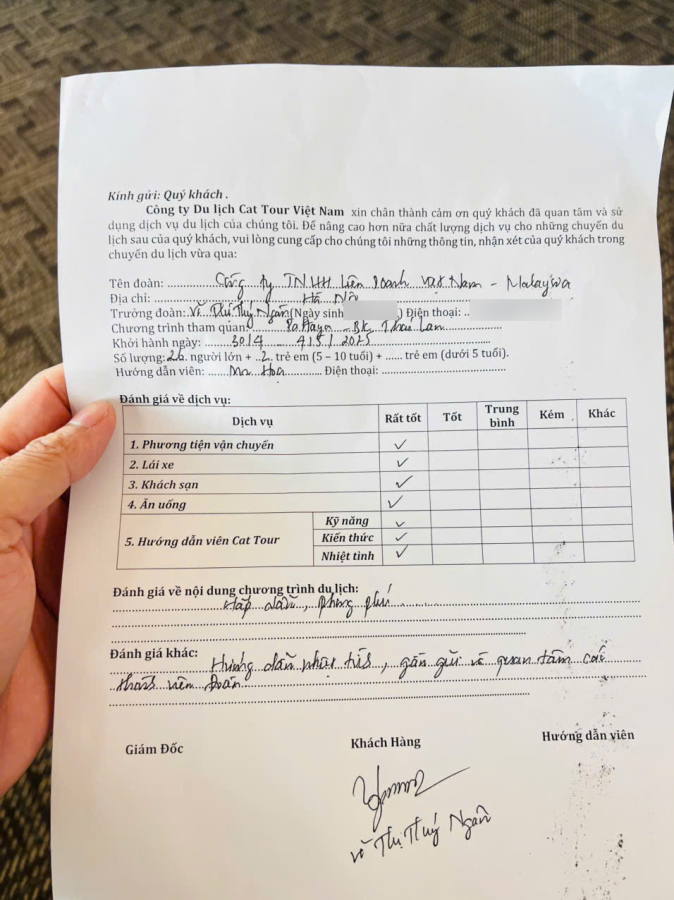 Kính gửi: Quý khách .
Công ty Du lịch Cat Tour Việt Nam xin chân thành cảm ơn quý khách đã quan tâm và sử
dụng dịch vụ du lịch của chúng tôi. Để nâng cao hơn nữa chất lượng dịch vụ cho những chuyến du
lịch sau của quý khách, vui lòng cung cấp cho chúng tôi những thông tin, nhận xét của quý khách trong
chuyến du lịch vừa qua:
Tên đoàn: Công ty TNHH Liên Doanh Việt Nam - Malaysia
Địa chỉ: Hà Nội
Trưởng đoàn: Võ Thị Thúy Ngân (Ngày sinh ) Điện thoại: ..
Chương trình tham quan: Pattaya - BK Thái Lan
Khởi hành ngày: 30/4 4/5/2025
Số lượng: 26 người lớn + 2 trẻ em (5 – 10 tuổi) + ...... trẻ em (dưới 5 tuổi).
Hướng dẫn viên: Mr Hoa Điện thoại:
Đánh giá về dịch vụ:
Dịch vụ Rất tốt Tốt Trung bình Kém Khác
1. Phương tiện vận chuyển ✓
2. Lái xe ✓
3. Khách sạn ✓
4. Ăn uống ✓
5. Hướng dẫn viên Cat Tour Kỹ năng ✓
Kiến thức ✓
Nhiệt tình ✓
Đánh giá về nội dung chương trình du lịch:
Hấp dẫn, phong phú
Đánh giá khác: Hướng dẫn nhiệt tình, gần gũi và quan tâm các
thành viên Đoàn
Giám Đốc Khách Hàng Hướng dẫn viên
Võ Thị Thúy Ngân